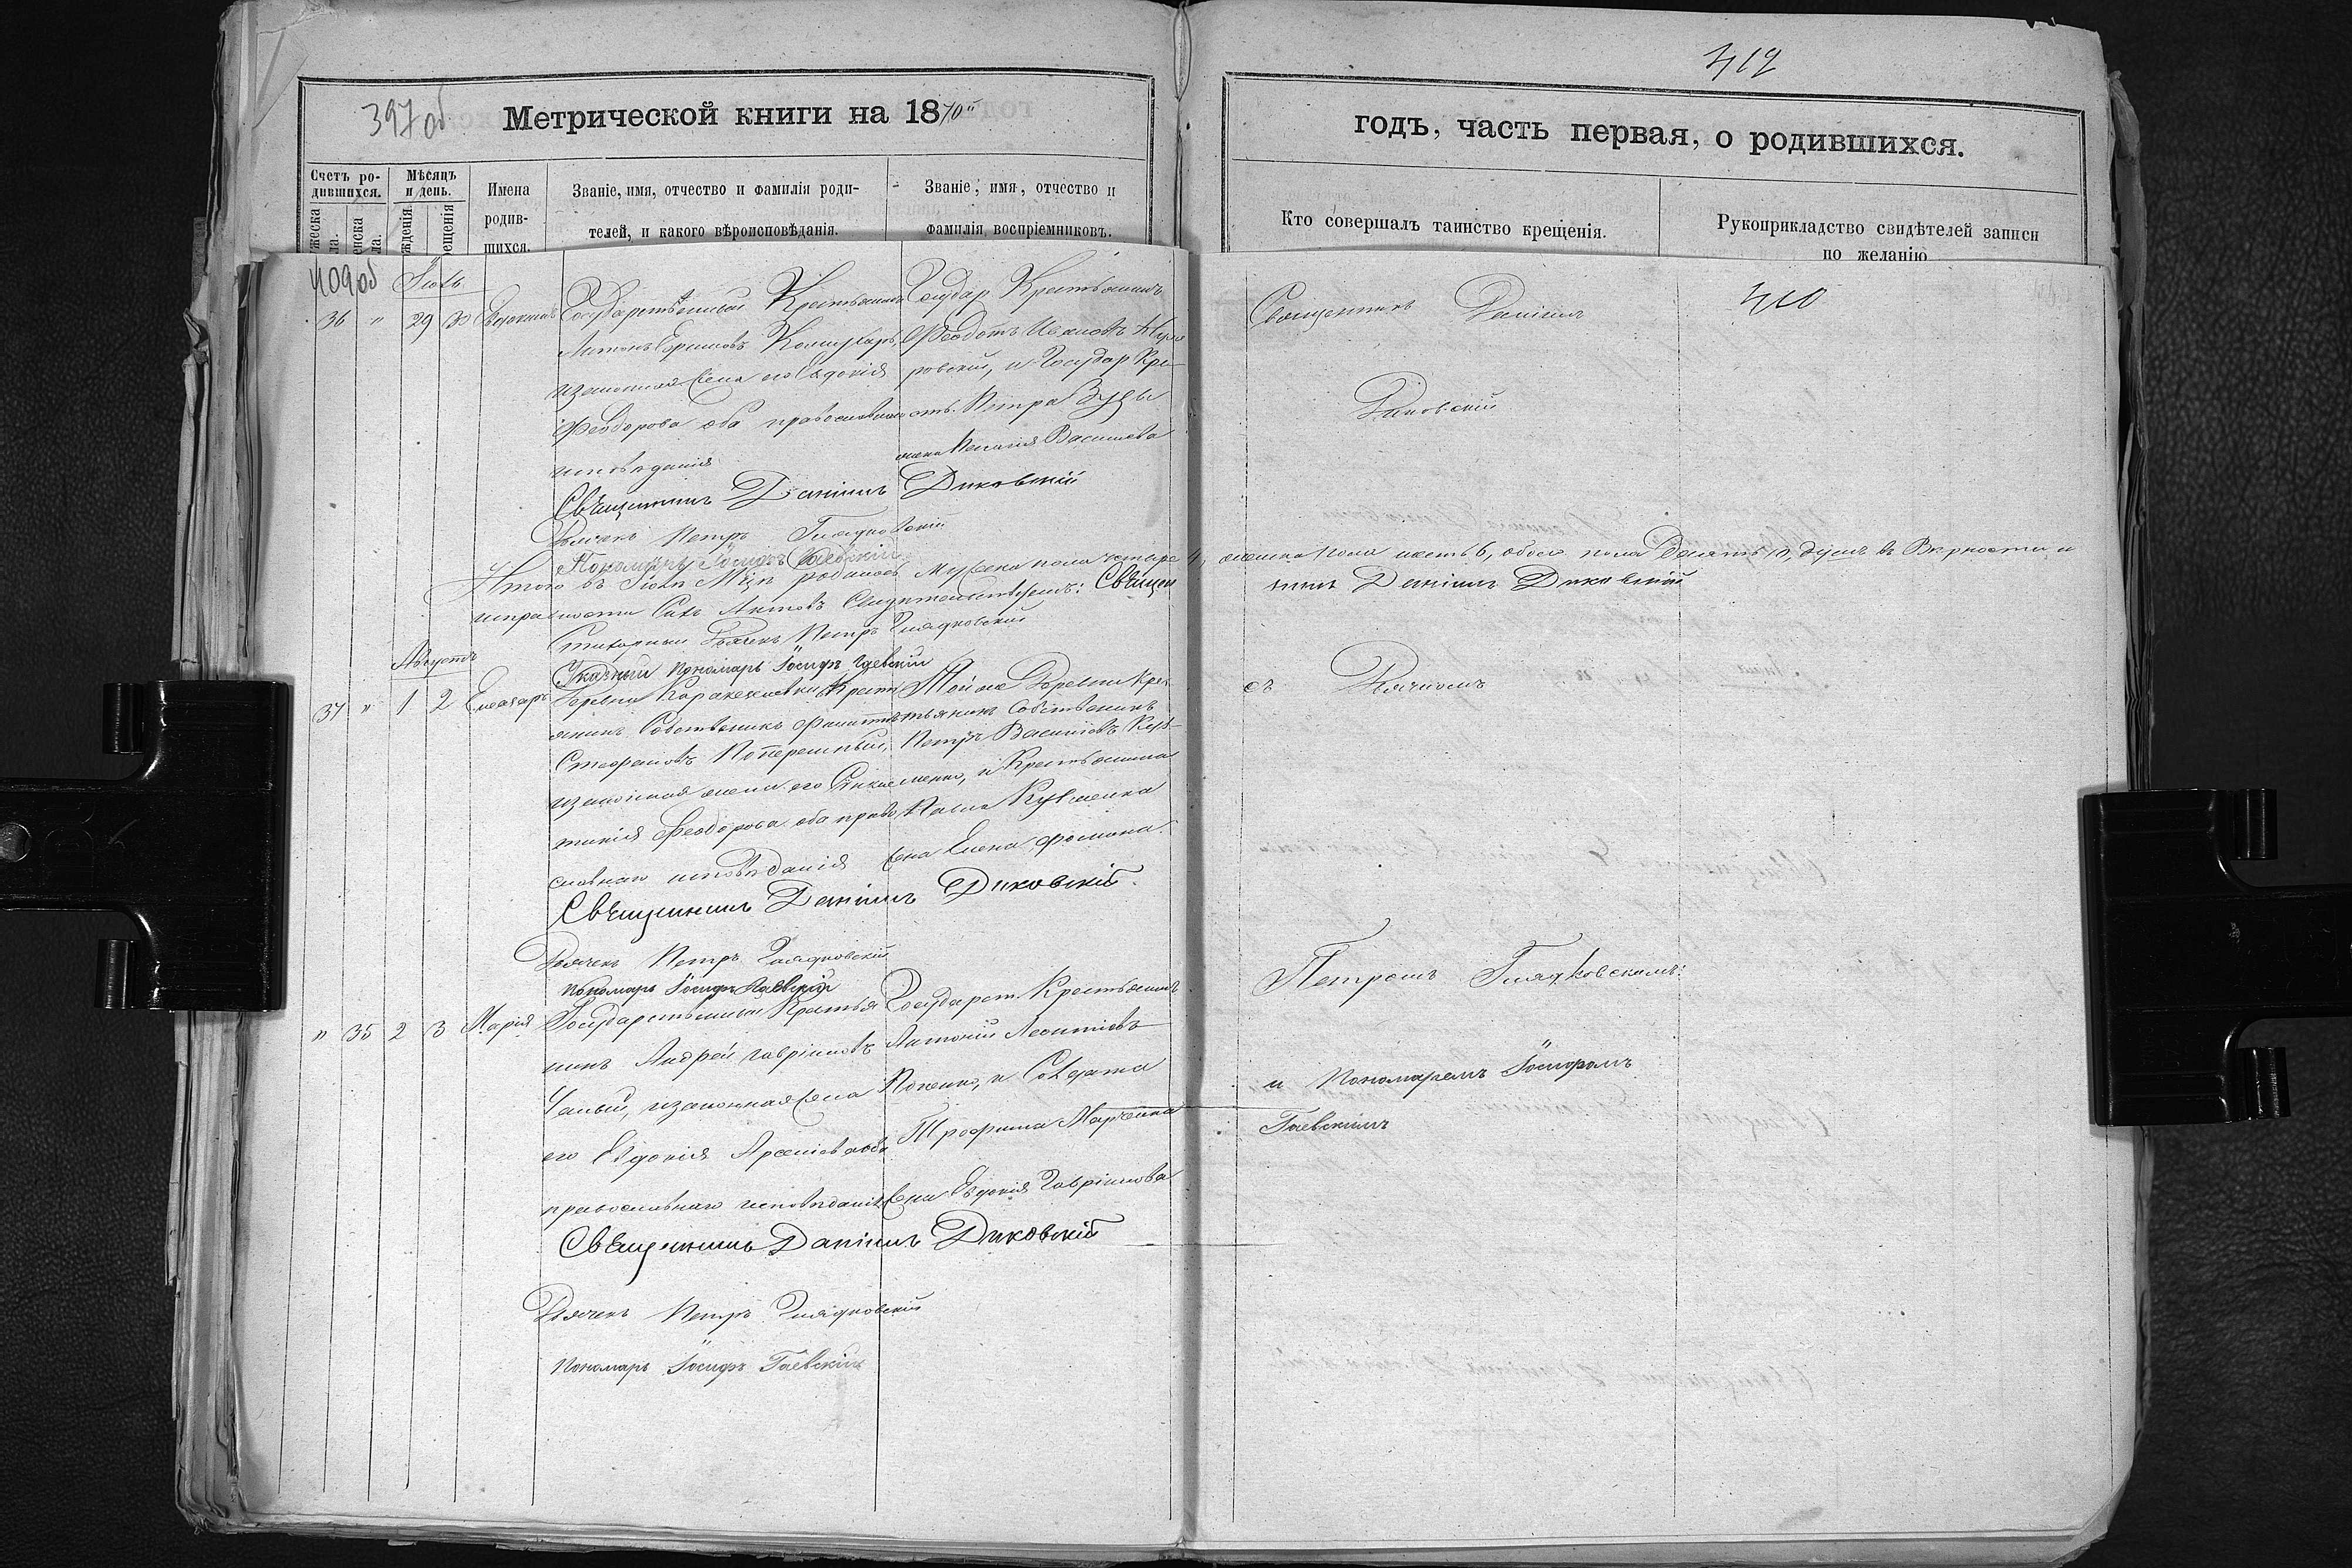 412
397 об
Метрической книги на 1870й
годъ, часть первая, о родившихся.
Счетъ родившихся.
Мѣсяцъ и день.
Имена родившихся.
Званіе, имя, отчество и фамилія родителей, и какого вѣроисповѣданія.
Званіе, имя, отчество и фамилія воспріемниковъ.
Кто совершалъ таинство крещенія.
Рукоприкладство свидѣтелей записи по желанію
409 об
410
Іюль
36 " 29 30 Евдокимъ
Государственный Крестьянинъ
Антонъ Ефимовъ
изаконная Жена его Евдокія
Феодорова оба православнаго
исповѣданія
Государ Крестьянинъ
Феодотъ Ивановъ
ровскій, и Государ Кре-
ст. Петра Зуба
жена Пелагія Васильева
Священникъ Даніилъ
Диковскій
Священникъ Даніилъ Диковскій
Дьячекъ Петръ Гладковскій
Пономарь Іосифъ Гаевскій
Итого въ Іюлѣ Мцѣ родилось Мужска пола четыре 4, женска пола шесть 6, обоего пола Десять 10, душъ въ Вѣрности и
исправности Сихъ Актовъ Свидѣтельствуемъ: Священникъ Даніилъ Диковскій
Стихарный Дьячекъ Петръ Гладковскій
Указный Пономарь Іосифъ Гаевскій
Августъ
37 " 1 2 Елеазаръ
Деревни Крест
янинъ Собственикъ
Стефановъ Поперешный,
изаконная жена его
Феодорова оба право
славнаго исповѣданія
Той же Деревни Крес
тьянинъ Собственикъ
Петръ Васильевъ Куз
менко, и Крестьянина
Павла Кузменка
Жена Елена Фомина
съ Дьячкомъ
Священникъ Даніилъ Диковскій
Дьячекъ Петръ Гладковскій
Пономарь Іосифъ Гаевскій
Петромъ Гладковскимъ:
" 35 2 3 Марія
Государственный Крестья
нинъ Андрей Гавріиловъ
изаконная Жена
его Евдокія Арсеніева оба
православнаго исповѣданія
Государст. Крестьянинъ
Антоній Леонтіевъ
Попенко, и Солдата
Трофима Марченка
Жена Евдокія Гавріилова
и Пономаремъ Іосифомъ
Гаевскимъ
Священникъ Даніилъ Диковскій
Дьячекъ Петръ Гладковскій
Пономарь Іосифъ Гаевскій